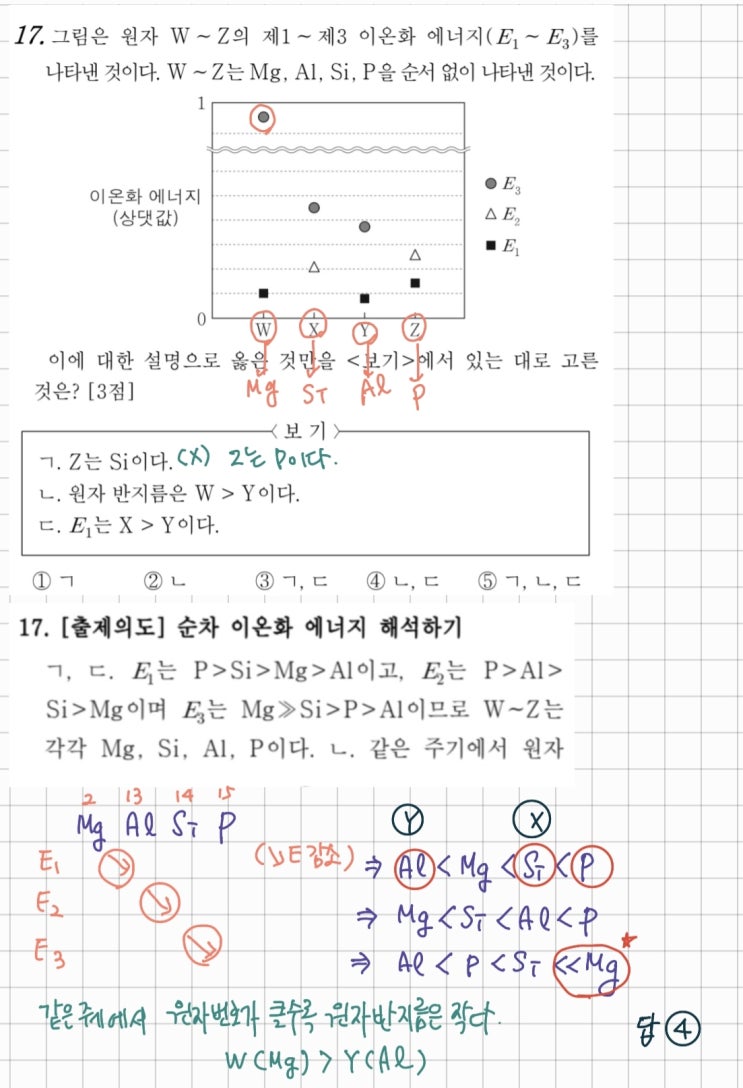 17. 그림은 원자 W ~ Z의 제1 ~ 제3 이온화 에너지(E₁ ~ E₃)를
나타낸 것이다. W ~ Z는 Mg, Al, Si, P을 순서 없이 나타낸 것이다.
1
이온화 에너지
(상댓값)
0
● E₃
△ E₂
■ E₁
W X Y Z
이에 대한 설명으로 옳은 것만을 <보기>에서 있는 대로 고른
것은? [3점]
Mg Si Al P
< 보 기 >
ㄱ. Z는 Si이다. (X) Z는 P이다.
ㄴ. 원자 반지름은 W > Y이다.
ㄷ. E₁는 X > Y이다.
① ㄱ ② ㄴ ③ ㄱ, ㄷ ④ ㄴ, ㄷ ⑤ ㄱ, ㄴ, ㄷ
17. [출제의도] 순차 이온화 에너지 해석하기
ㄱ, ㄷ. E₁는 P>Si>Mg>Al이고, E₂는 P>Al>
Si>Mg이며 E₃는 Mg≫Si>P>Al이므로 W~Z는
각각 Mg, Si, Al, P이다. ㄴ. 같은 주기에서 원자
2 13 14 15
Mg Al Si P
Y X
E₁ ↘ (↘E감소) ⇒ Al < Mg < Si < P
E₂ ↘ ⇒ Mg < Si < Al < P
E₃ ↘ ⇒ Al < P < Si << Mg ★
같은 주기에서 원자번호가 클수록 원자반지름은 작다.
W(Mg) > Y(Al)
답 ④